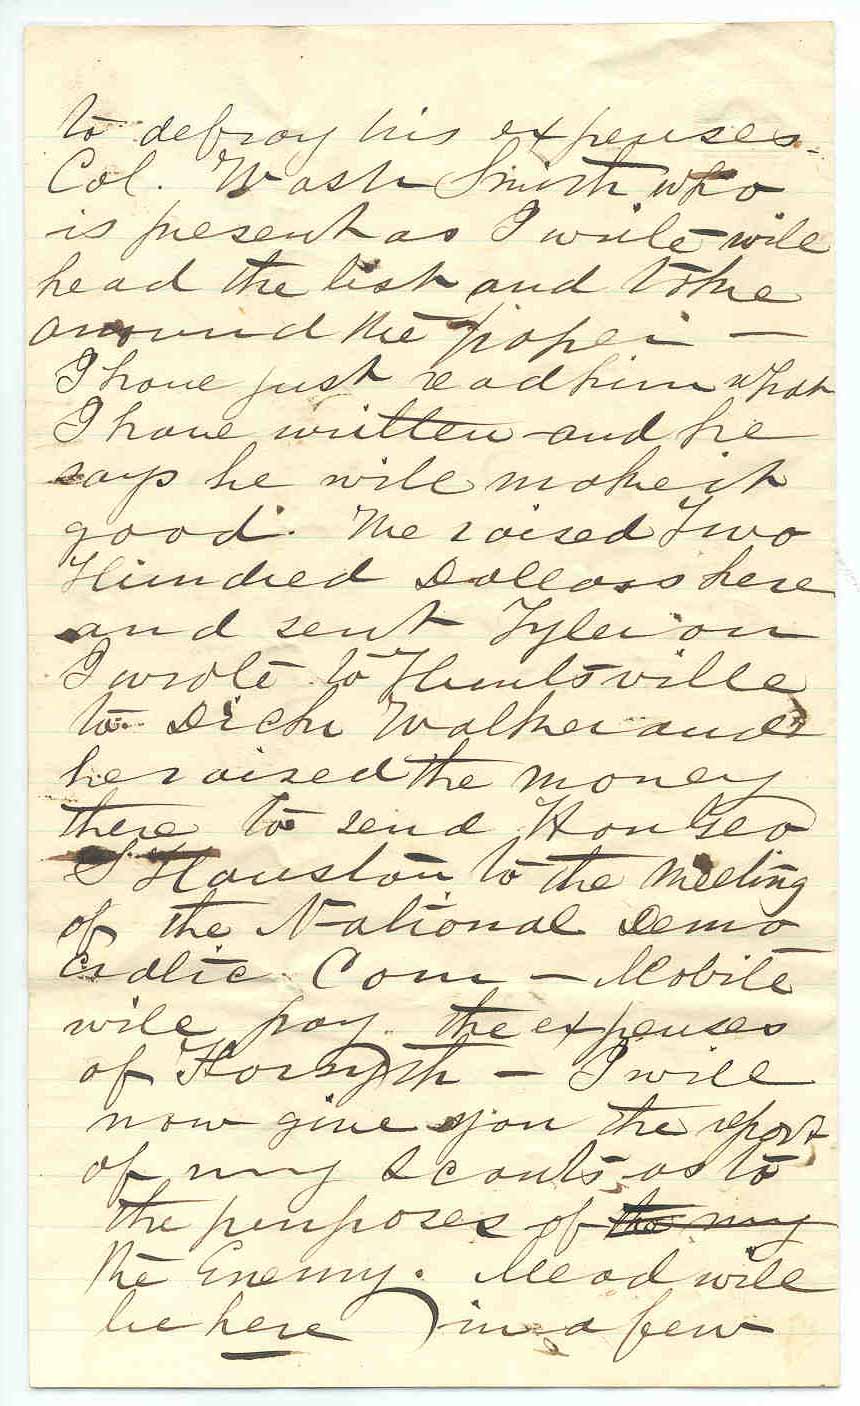 to defray his expenses-
Col. Wash Smith who
is present as I write will
head the list and take
around the paper —
I have just read him what
I have written and he
says he will make it
good. We raised Two
Hundred Dollars here
and sent Tyler on
I wrote to Huntsville
to Dick Walker and
he raised the money
there to send Hon Geo
S Houston to the meeting
of the National Demo
cratic Com — Mobile
will pay the expenses
of Forsyth — I will
now give you the report
of my scouts as to
the purposes of the my
the Enemy. Mead will
be here in a few